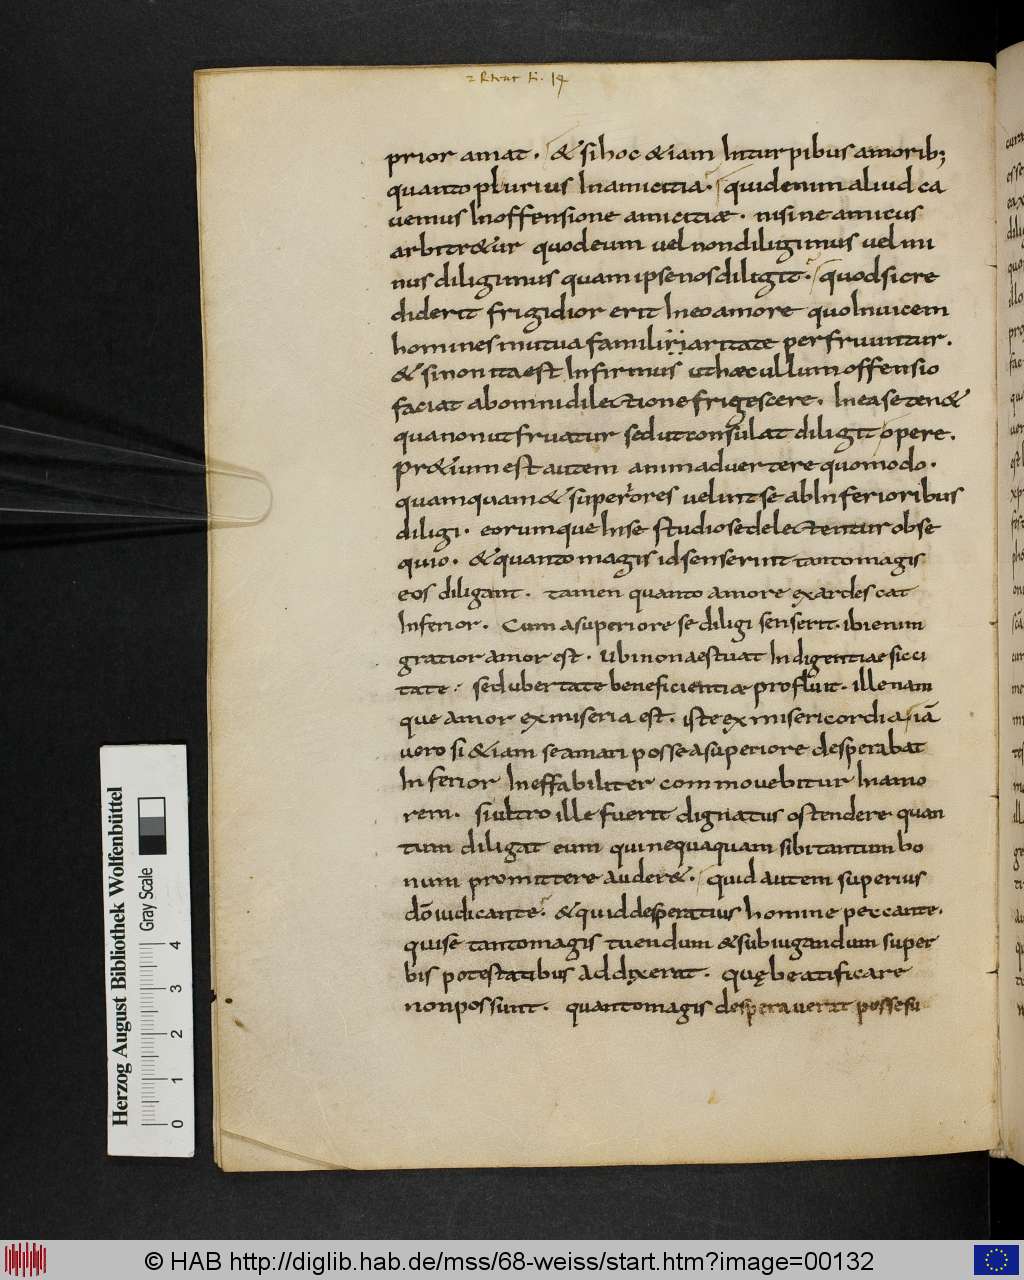 prior amat. & si hoc & iam In turpibus amorib;
quanto plurius In amicitia. quid enim aliud ca
uemus In offensione amicitiæ. nisi ne amicus
arbitr&ur quod eum uel non diligimus uel mi
nus diligimus quam ipse nos diligit. quod si cre
diderit frigidior erit In eo amore quo Inuicem
homines mutua familiiaritate perfruuntur.
& si non ita est Infirmus ut hæc illum offensio
faciat ab omni dilectione frigescere. In ea se ten&
qua non ut fruatur sed ut consulat diligit opere.
Pr&ium est autem animaduertere quomodo.
quamquam & superiores uelint se ab Inferioribus
diligi. eorumque In se studiose delectentur obse
quio. & quanto magis id senserint tanto magis
eos diligant. tamen quanto amore exardescat
Inferior. Cum a superiore se diligi senserit. ibi enim
gratior amor est. ubi non aestuat Indigentiae sicci
tate: sed ubertate beneficientiæ profluit. ille nam
que amor ex miseria est. iste ex misericordia iā
uero si & iam se amari posse a superiore desperabat
Inferior Ineffabiliter commouebitur In amo
rem. si ultro ille fuerit dignatus ostendere quan
tum diligat eum qui nequaquam sibi tantum bo
num promittere auder&. quid autem superius
dō iudicante. & quid desperatius homine peccante.
qui se tanto magis tuendum & subiugandum super
bis potestatibus addixerat. quę beatificare
non possunt. quanto magis desperauerit posse sui
Herzog August Bibliothek Wolfenbüttel
Gray Scale
0 1 2 3 4
© HAB http://diglib.hab.de/mss/68-weiss/start.htm?image=00132